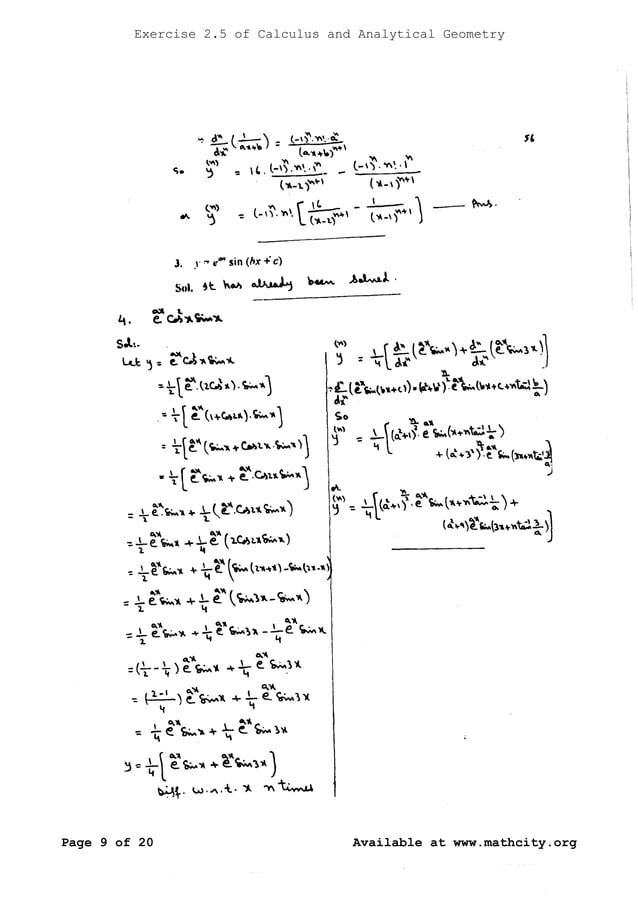 Exercise 2.5 of Calculus and Analytical Geometry
∵ dⁿ/dxⁿ (1/(ax+b)) = (-1)ⁿ.n!.aⁿ/(ax+b)ⁿ⁺¹
56
So y⁽ⁿ⁾ = 16.(-1)ⁿ.n!.1ⁿ/(x-2)ⁿ⁺¹ - (-1)ⁿ.n!.1ⁿ/(x-1)ⁿ⁺¹
or y⁽ⁿ⁾ = (-1)ⁿ.n! [16/(x-2)ⁿ⁺¹ - 1/(x-1)ⁿ⁺¹] —— Ans.
3. y = eᵃˣ sin (bx + c)
Sol. It has already been solved.
4. eᵃˣ Cos²x Sinx
Sol:-
Let y = eᵃˣ Cos²x Sinx
= 1/2 [eᵃˣ.(2Cos²x).Sinx]
= 1/2 [eᵃˣ(1+Cos2x).Sinx]
= 1/2 [eᵃˣ(Sinx + Cos2x.Sinx)]
= 1/2 [eᵃˣ Sinx + eᵃˣ.Cos2x Sinx]
= 1/2 eᵃˣ.Sinx + 1/2 (eᵃˣ.Cos2x Sinx)
= 1/2 eᵃˣ Sinx + 1/4 eᵃˣ (2Cos2x Sinx)
= 1/2 eᵃˣ Sinx + 1/4 eᵃˣ (Sin(2x+x) - Sin(2x-x))
= 1/2 eᵃˣ Sinx + 1/4 eᵃˣ (Sin3x - Sinx)
= 1/2 eᵃˣ Sinx + 1/4 eᵃˣ Sin3x - 1/4 eᵃˣ Sinx
= (1/2 - 1/4) eᵃˣ Sinx + 1/4 eᵃˣ Sin3x
= ((2-1)/4) eᵃˣ Sinx + 1/4 eᵃˣ Sin3x
= 1/4 eᵃˣ Sinx + 1/4 eᵃˣ Sin3x
y = 1/4 [eᵃˣ Sinx + eᵃˣ Sin3x]
Diff. w.r.t. x n times
y⁽ⁿ⁾ = 1/4 [dⁿ/dxⁿ (eᵃˣ Sinx) + dⁿ/dxⁿ (eᵃˣ Sin3x)]
∵ dⁿ/dxⁿ (eᵃˣ Sin(bx+c)) = (a²+b²)^(n/2).eᵃˣ Sin(bx+c+n tan⁻¹ b/a)
So
y⁽ⁿ⁾ = 1/4 [(a²+1)^(n/2).eᵃˣ Sin(x+n tan⁻¹ 1/a)
+ (a²+3²)^(n/2).eᵃˣ Sin(3x+n tan⁻¹ 3/a)]
or
y⁽ⁿ⁾ = 1/4 [(a²+1)^(n/2).eᵃˣ Sin(x+n tan⁻¹ 1/a) +
(a²+9)eᵃˣ Sin(3x+n tan⁻¹ 3/a)]
Page 9 of 20
Available at www.mathcity.org